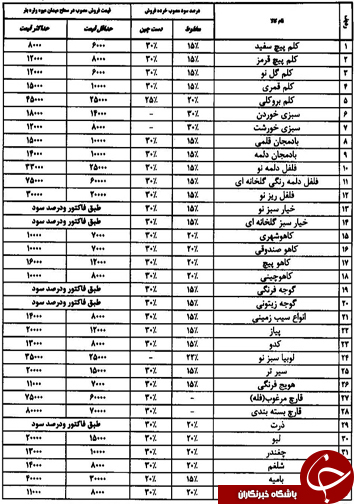 ردیف نام کالا درصد سود مصوب خرده فروش قیمت فروش مصوب در سطح میدان میوه وتره بار
مخلوط دست چین حداقل قیمت حداکثر قیمت
۱ کلم پیچ سفید ۱۵٪ ۳۰٪ ۶۰۰۰ ۸۰۰۰
۲ کلم پیچ قرمز ۱۵٪ ۳۰٪ ۸۰۰۰ ۱۲۰۰۰
۳ کلم گل نو ۱۵٪ ۳۰٪ ۶۰۰۰ ۱۲۰۰۰
۴ کلم قمری ۱۵٪ ۳۰٪ ۱۰۰۰۰ ۱۵۰۰۰
۵ کلم بروکلی ۲۰٪ ۲۵٪ ۲۵۰۰۰ ۴۵۰۰۰
۶ سبزی خوردن ۳۰٪ - ۱۴۰۰۰ ۱۸۰۰۰
۷ سبزی خورشت ۳۰٪ - ۸۰۰۰ ۱۲۰۰۰
۸ بادمجان قلمی ۱۵٪ ۳۰٪ ۱۰۰۰۰ ۱۵۰۰۰
۹ بادمجان دلمه ۱۵٪ ۳۰٪ ۱۰۰۰۰ ۱۴۰۰۰
۱۰ فلفل دلمه نو ۱۵٪ ۳۰٪ ۲۵۰۰۰ ۳۳۰۰۰
۱۱ فلفل دلمه رنگی گلخانه ای ۱۵٪ ۳۰٪ ۶۰۰۰۰ ۷۵۰۰۰
۱۲ فلفل ریز نو ۱۵٪ ۳۰٪ ۲۰۰۰۰ ۳۰۰۰۰
۱۳ خیار سبز نو ۱۵٪ ۳۰٪ طبق فاکتور ودرصد سود
۱۴ خیار سبز گلخانه ای ۱۵٪ ۳۰٪ طبق فاکتور ودرصد سود
۱۵ کاهوشهری ۲۰٪ ۳۰٪ ۷۰۰۰ ۱۰۰۰۰
۱۶ کاهو صندوقی ۲۰٪ ۳۰٪ ۷۰۰۰ ۱۰۰۰۰
۱۷ کاهو پیچ ۲۰٪ ۳۰٪ ۱۲۰۰۰ ۱۶۰۰۰
۱۸ کاهوچینی ۲۰٪ ۳۰٪ ۸۰۰۰ ۱۰۰۰۰
۱۹ گوجه فرنگی ۱۵٪ ۳۰٪ طبق فاکتور ودرصد سود
۲۰ گوجه زیتونی ۲۰٪ ۳۰٪ طبق فاکتور ودرصد سود
۲۱ انواع سیب زمینی ۱۵٪ ۳۰٪ ۸۰۰۰ ۱۴۰۰۰
۲۲ پیاز ۱۵٪ ۳۰٪ ۱۲۰۰۰ ۲۰۰۰۰
۲۳ کدو ۱۵٪ ۳۰٪ ۸۰۰۰ ۱۳۰۰۰
۲۴ لوبیا سبز نو ۲۳٪ - ۲۵۰۰۰ ۳۵۰۰۰
۲۵ سیر تر ۱۵٪ ۳۰٪ ۱۵۰۰۰ ۲۰۰۰۰
۲۶ هویج فرنگی ۱۵٪ ۳۰٪ ۷۰۰۰ ۱۱۰۰۰
۲۷ قارچ مرغوب(فله) - ۳۰٪ ۶۰۰۰۰ ۷۵۰۰۰
۲۸ قارچ بسته بندی - ۳۰٪ ۷۰۰۰۰ ۸۰۰۰۰
۲۹ ذرت ۲۰٪ ۳۰٪ طبق فاکتور ودرصد سود
۳۰ لبو ۲۰٪ ۳۰٪ ۱۵۰۰۰ ۲۰۰۰۰
۳۱ چغندر ۲۰٪ ۳۰٪ ۱۰۰۰۰
شلغم ۲۰٪ ۳۰٪ ۸۰۰۰ ۱۴۰۰۰
بامیه ۱۵٪ ۲۰٪ ۳۰۰۰۰ ۴۰۰۰۰
۲۰٪ ۳۰٪ ۸۰۰۰ ۱۱۰۰۰
باشگاه خبرنگاران